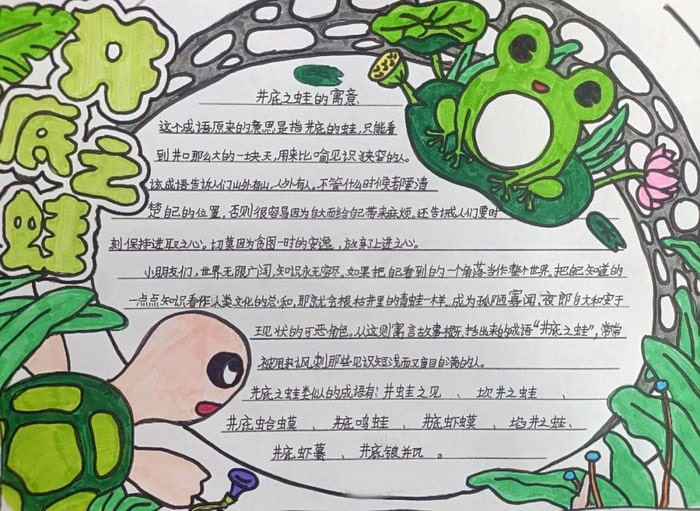 井底之蛙
井底之蛙的寓意
这个成语原来的意思是指井底的蛙，只能看
到井口那么大的一块天，用来比喻见识狭窄的人。
该成语告诉人们山外有山，人外有人，不管什么时候都要清
楚自己的位置，否则很容易因为自大而给自己带来麻烦，还告诫人们要时
刻保持进取之心。切莫因为贪图一时的安逸，放弃了上进之心。
小朋友们，世界无限广阔，知识永无穷尽。如果把自己看到的一个角落当作整个世界，把自己知道的
一点点知识看作人类文化的总和，那就会跟枯井里的青蛙一样，成为孤陋寡闻、夜郎自大和安于
现状的可悲角色。从这则寓言故事概括出来的成语“井底之蛙”，常常
被用来讽刺那些见识短浅而又盲目自满的人。
井底之蛙类似的成语有：井蛙之见 、 坎井之蛙 、
井底蛤蟆 、 井底鸣蛙 、 井底虾蟆 、 埳井之蛙、
井底虾蟇 、 井底银瓶 。